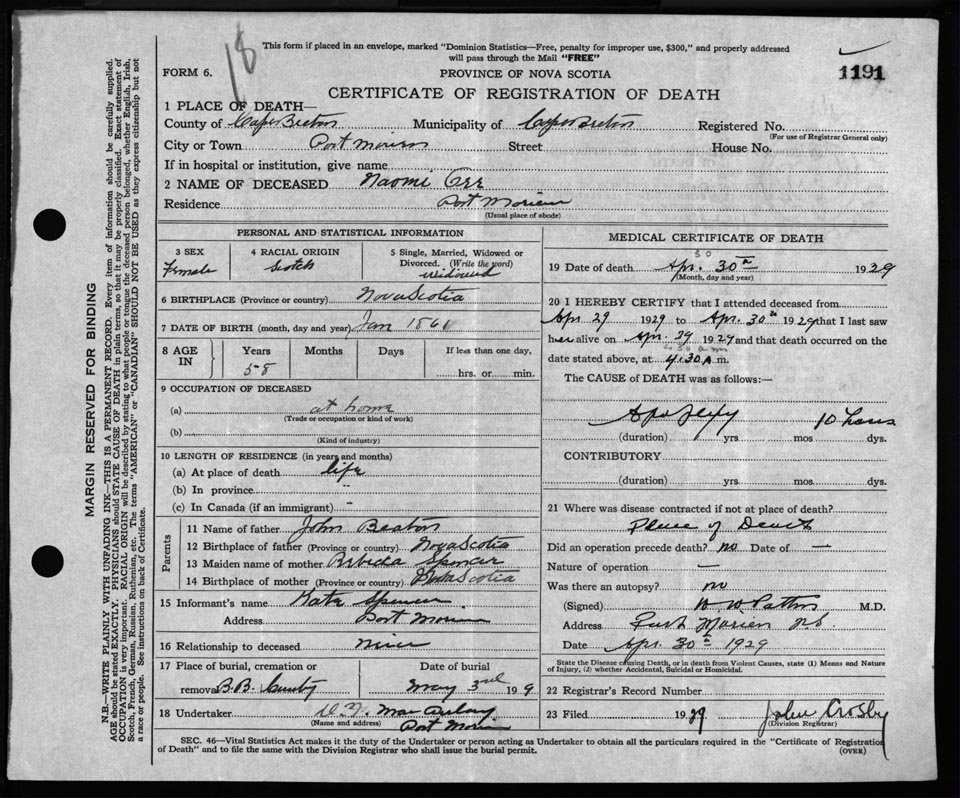 18
This form if placed in an envelope, marked "Dominion Statistics—Free, penalty for improper use, $300," and properly addressed
will pass through the Mail "FREE"
FORM 6.
PROVINCE OF NOVA SCOTIA
1191
CERTIFICATE OF REGISTRATION OF DEATH
1 PLACE OF DEATH—
County of Cape Breton Municipality of Cape Breton Registered No.
(For use of Registrar General only)
City or Town Port Morien Street House No.
If in hospital or institution, give name
2 NAME OF DECEASED Naomi Orr
Residence Port Morien
(Usual place of abode)
PERSONAL AND STATISTICAL INFORMATION
3 SEX 4 RACIAL ORIGIN 5 Single, Married, Widowed or
Divorced. (Write the word)
Female Scotch Widowed
6 BIRTHPLACE (Province or country) Nova Scotia
7 DATE OF BIRTH (month, day and year) Jan
8 AGE IN Years Months Days If less than one day,
58 hrs. or min.
9 OCCUPATION OF DECEASED
(a) at home
(Trade or occupation or kind of work)
(b)
(Kind of industry)
10 LENGTH OF RESIDENCE (in years and months)
(a) At place of death life
(b) In province "
(c) In Canada (if an immigrant) "
Parents
11 Name of father John Beaton
12 Birthplace of father (Province or country) Nova Scotia
13 Maiden name of mother Spencer
14 Birthplace of mother (Province or country) Nova Scotia
15 Informant's name Kate Spencer
Address Port Morien
16 Relationship to deceased
17 Place of burial, cremation or Date of burial
removal B.B. May 3rd 19 9
18 Undertaker
(Name and address) Port Morien
MEDICAL CERTIFICATE OF DEATH
30
19 Date of death Apr. 30th 1929
(Month, day and year)
20 I HEREBY CERTIFY that I attended deceased from
Apr 29 1929 to Apr. 30th 1929 that I last saw
her alive on Apr. 29 1929 and that death occurred on the
date stated above, at 4.30 A.m.
The CAUSE of DEATH was as follows:—
Apoplexy 10 hours
(duration) yrs. mos dys.
CONTRIBUTORY
(duration) yrs. mos. dys.
21 Where was disease contracted if not at place of death?
Place of Death
Did an operation precede death? no Date of —
Nature of operation —
Was there an autopsy? no
(Signed) M.D.
Address Port Morien NS
Date Apr. 30th 1929
State the Disease causing Death, or in death from Violent Causes, state (1) Means and Nature
of Injury, (2) whether Accidental, Suicidal or Homicidal.
22 Registrar's Record Number
23 Filed 1929 John Crosby
(Division Registrar)
SEC. 46—Vital Statistics Act makes it the duty of the Undertaker or person acting as Undertaker to obtain all the particulars required in the "Certificate of Registration
of Death" and to file the same with the Division Registrar who shall issue the burial permit. (OVER)
MARGIN RESERVED FOR BINDING
N.B.—WRITE PLAINLY WITH UNFADING INK—THIS IS A PERMANENT RECORD. Every item of information should be carefully supplied.
AGE should be stated EXACTLY. PHYSICIANS should STATE CAUSE OF DEATH in plain terms, so that it may be properly classified. Exact statement of
OCCUPATION is very important. RACIAL ORIGIN will be described by stating to what people or tongue the deceased person belonged, whether English, Irish,
Scotch, French, German, Russian, Ruthenian, etc. The terms "AMERICAN" or "CANADIAN" SHOULD NOT BE USED as they express citizenship but not
a race or people. See instructions on back of Certificate.